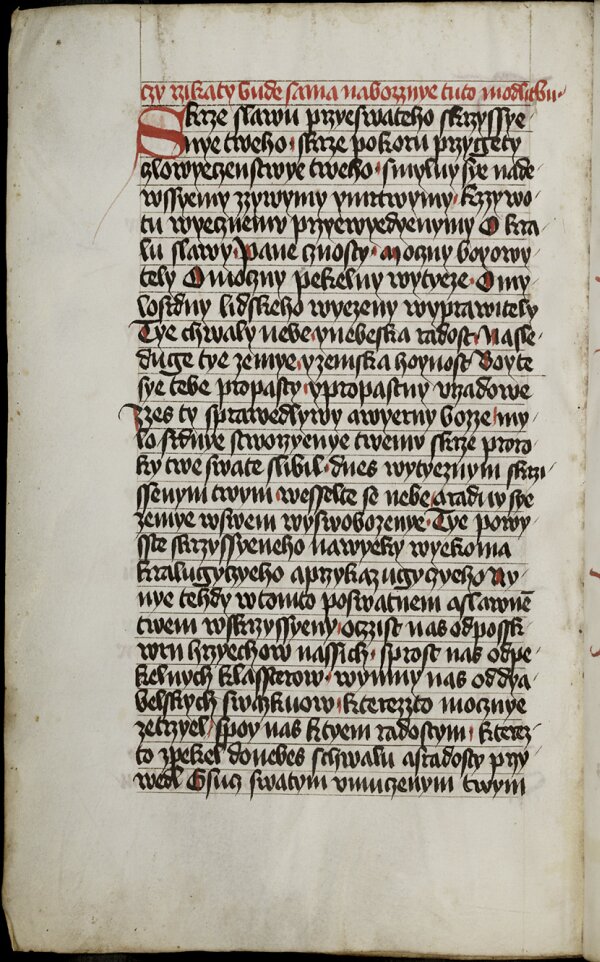 czy rzikaty bude sama nabozznye tuto modlitbu
Skrze slawu przyeswateho skrzyssye
nye tweho skrze pokoru przygety
czlowyeczenstwye tweho smyluy sye nade
wssyemy zzywymy ymrtwymy kzzywo
tu wyecznemu przyewyedyenymy O kra
lu slawy Pane cznosty Moczny boyowy
tely O moczny pekelny wytyeze O my
losrdny lidskeho wyezeny wyprawitely
Tye chwaly nebe ynebeska radost Nasle
duge tye zemye yzemska hoynost Boyte
sye tebe propasty ypropastny vrzadowe
zzes ty sprawedlywy awyerny bozze my
lo srdnye stworzyenye twemu skrze proro
ky twe swate slibil dnes wytyeznym skrzi
ssenym twym wesselte se nebe aradugsye
zemye wswem wyswobozenye Tye powy
sste skrzyssyeneho nawyeky wyekoma
kralugyczyeho aprzykazugyczyeho Ny
nye tehdy wtomto poswatnem aslawnē
twem wskrzyssyeny oczist nas odpossk
wrn hrzyechow nassich sprost nas odpe
kelnych klassterow wynmy nas oddya
belskych swazkuow kterezzto mocznye
zetrzyel spoy nas ktyem radostym kterez
to zpekel donebes schwalu asradosty przy
wedl Gsucz swatym vmuczenym twym